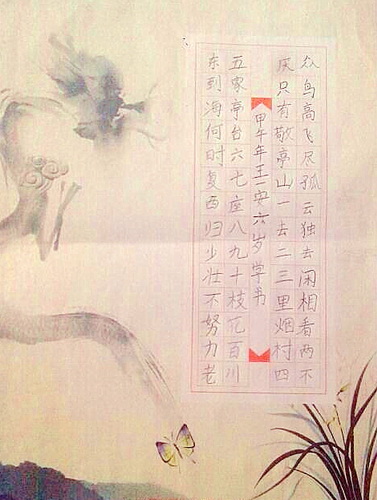 众鸟高飞尽孤云独去闲相看两不
厌只有敬亭山一去二三里烟村四
甲午年王一安六岁学书
五家亭台六七座八九十枝花百川
东到海何时复西归少壮不努力老